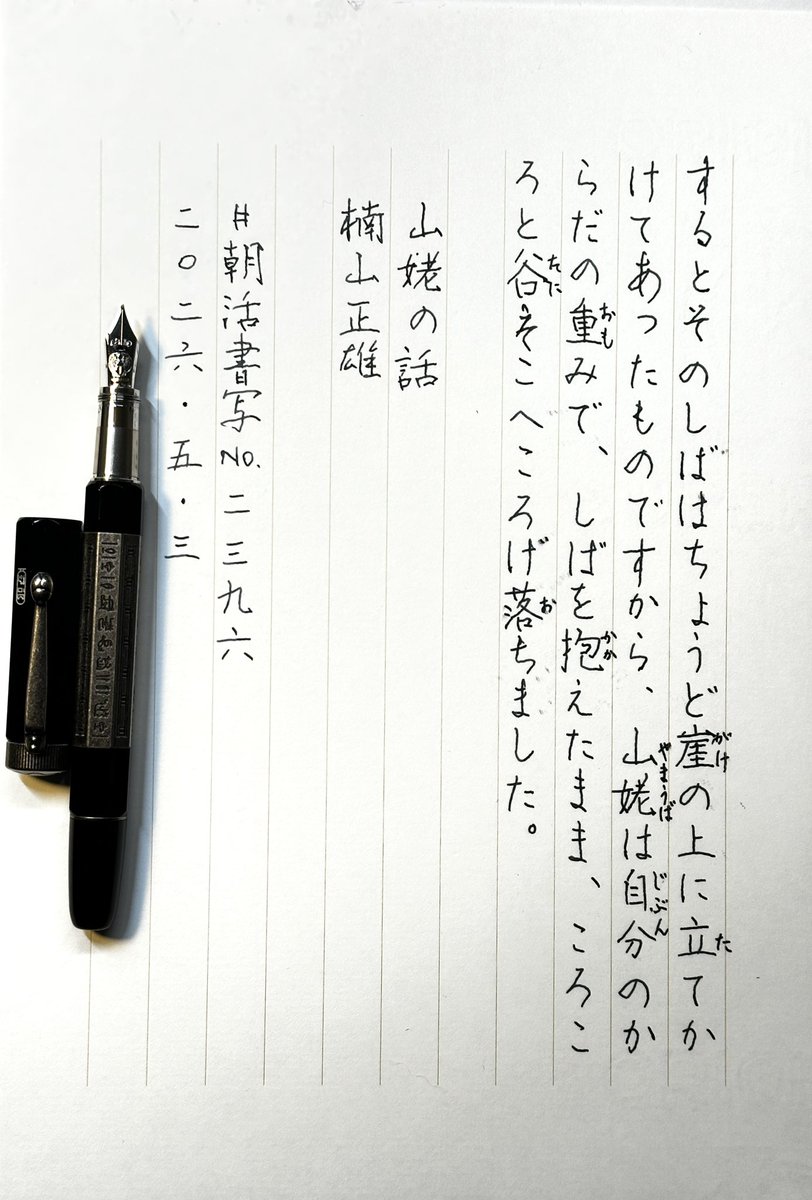 するとそのしばはちょうど崖の上に立てか
けてあったものですから、山姥は自分のか
らだの重みで、しばを抱えたまま、ころこ
ろと谷そこへころげ落ちました。
がけ
た
やまうば
じぶん
おも
かか
たに
お
山姥の話
楠山正雄
#朝活書写No.二三九六
二〇二六・五・三